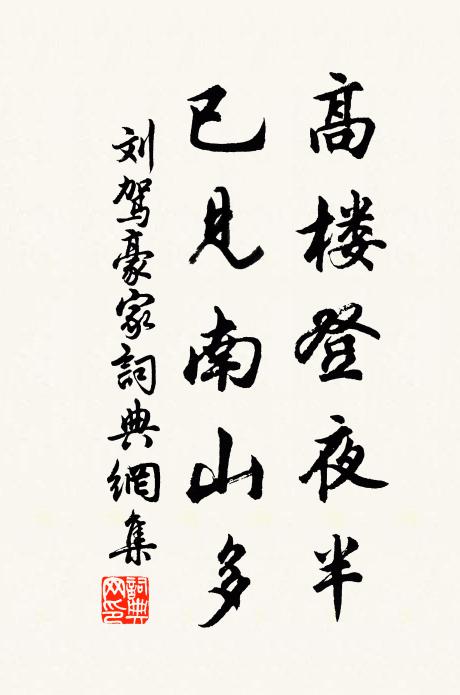 高楼登夜半
已见南山多
刘驾豪家詞典網集
詞典网印